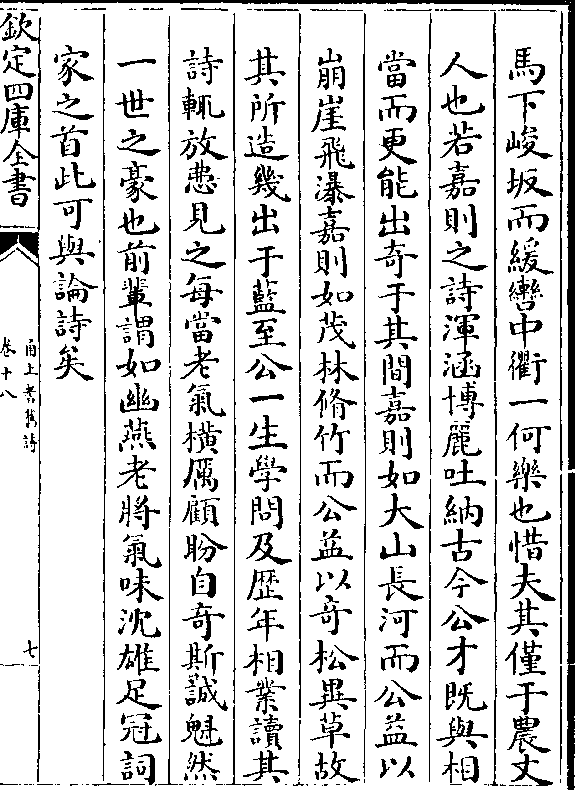 馬下峻坂而緩轡中衢一何樂也惜夫其僅于農丈
人也若嘉則之詩渾涵博麗吐納古今公才既與相
當而更能出奇于其間嘉則如大山長河而公益以
崩崖飛瀑嘉則如茂林脩竹而公益以奇松異草故
其所造幾出于藍至公一生學問及歴年相業讀其
詩輒放悉見之每當老氣橫厲顧盼自奇斯誠魁然
一世之豪也前輩謂如幽燕老將氣味沈雄足冠詞
家之首此可與論詩矣
欽定四庫全書
甬上耆舊詩
卷十八
七